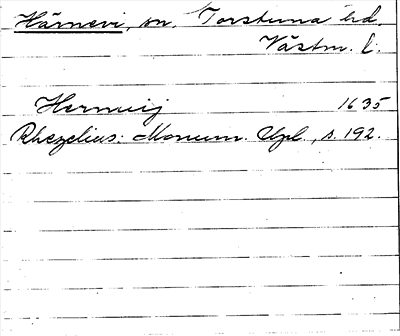 Härnevi, sn. Torstuna hd.
Västm. l.
Hernuij 1635
Rhezelius: Monum. Upl., s. 192.